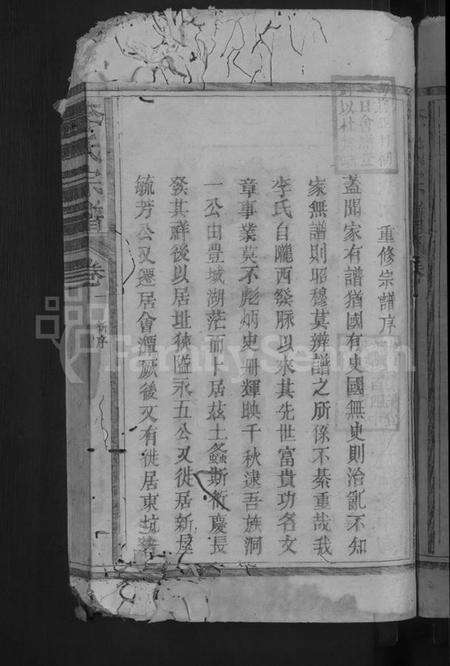 重修宗譜序
蓋聞家有譜猶國有史國無史則治亂不知
家無譜則昭穆莫辨譜之所係不綦重哉我
李氏自隴西發脉以來其先世富貴功名文
章事業莫不彪炳史冊輝映千秋逮吾族洞
一公由豐城湖茫而卜居茲土螽斯衍慶長
發其祥後以居址狹隘永五公又徙居新屋
毓芳公又遷居會潭厥後又有徙居東坑
氏宗譜 卷
序
FamilySearch